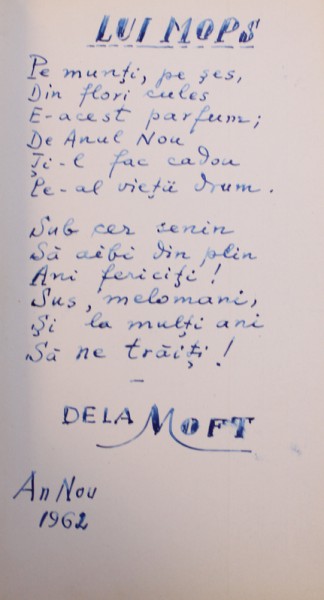 LUI MOPS
Pe munți, pe șes,
Din flori cules
E-acest parfum;
De Anul Nou
Ți-l fac cadou
Pe-al vieții drum.
Sub cer senin
Să aibi din plin
Ani fericiți!
Sus, melomani,
Și la mulți ani
Să ne trăiți!
—
DELA MOFT
An Nou
1962